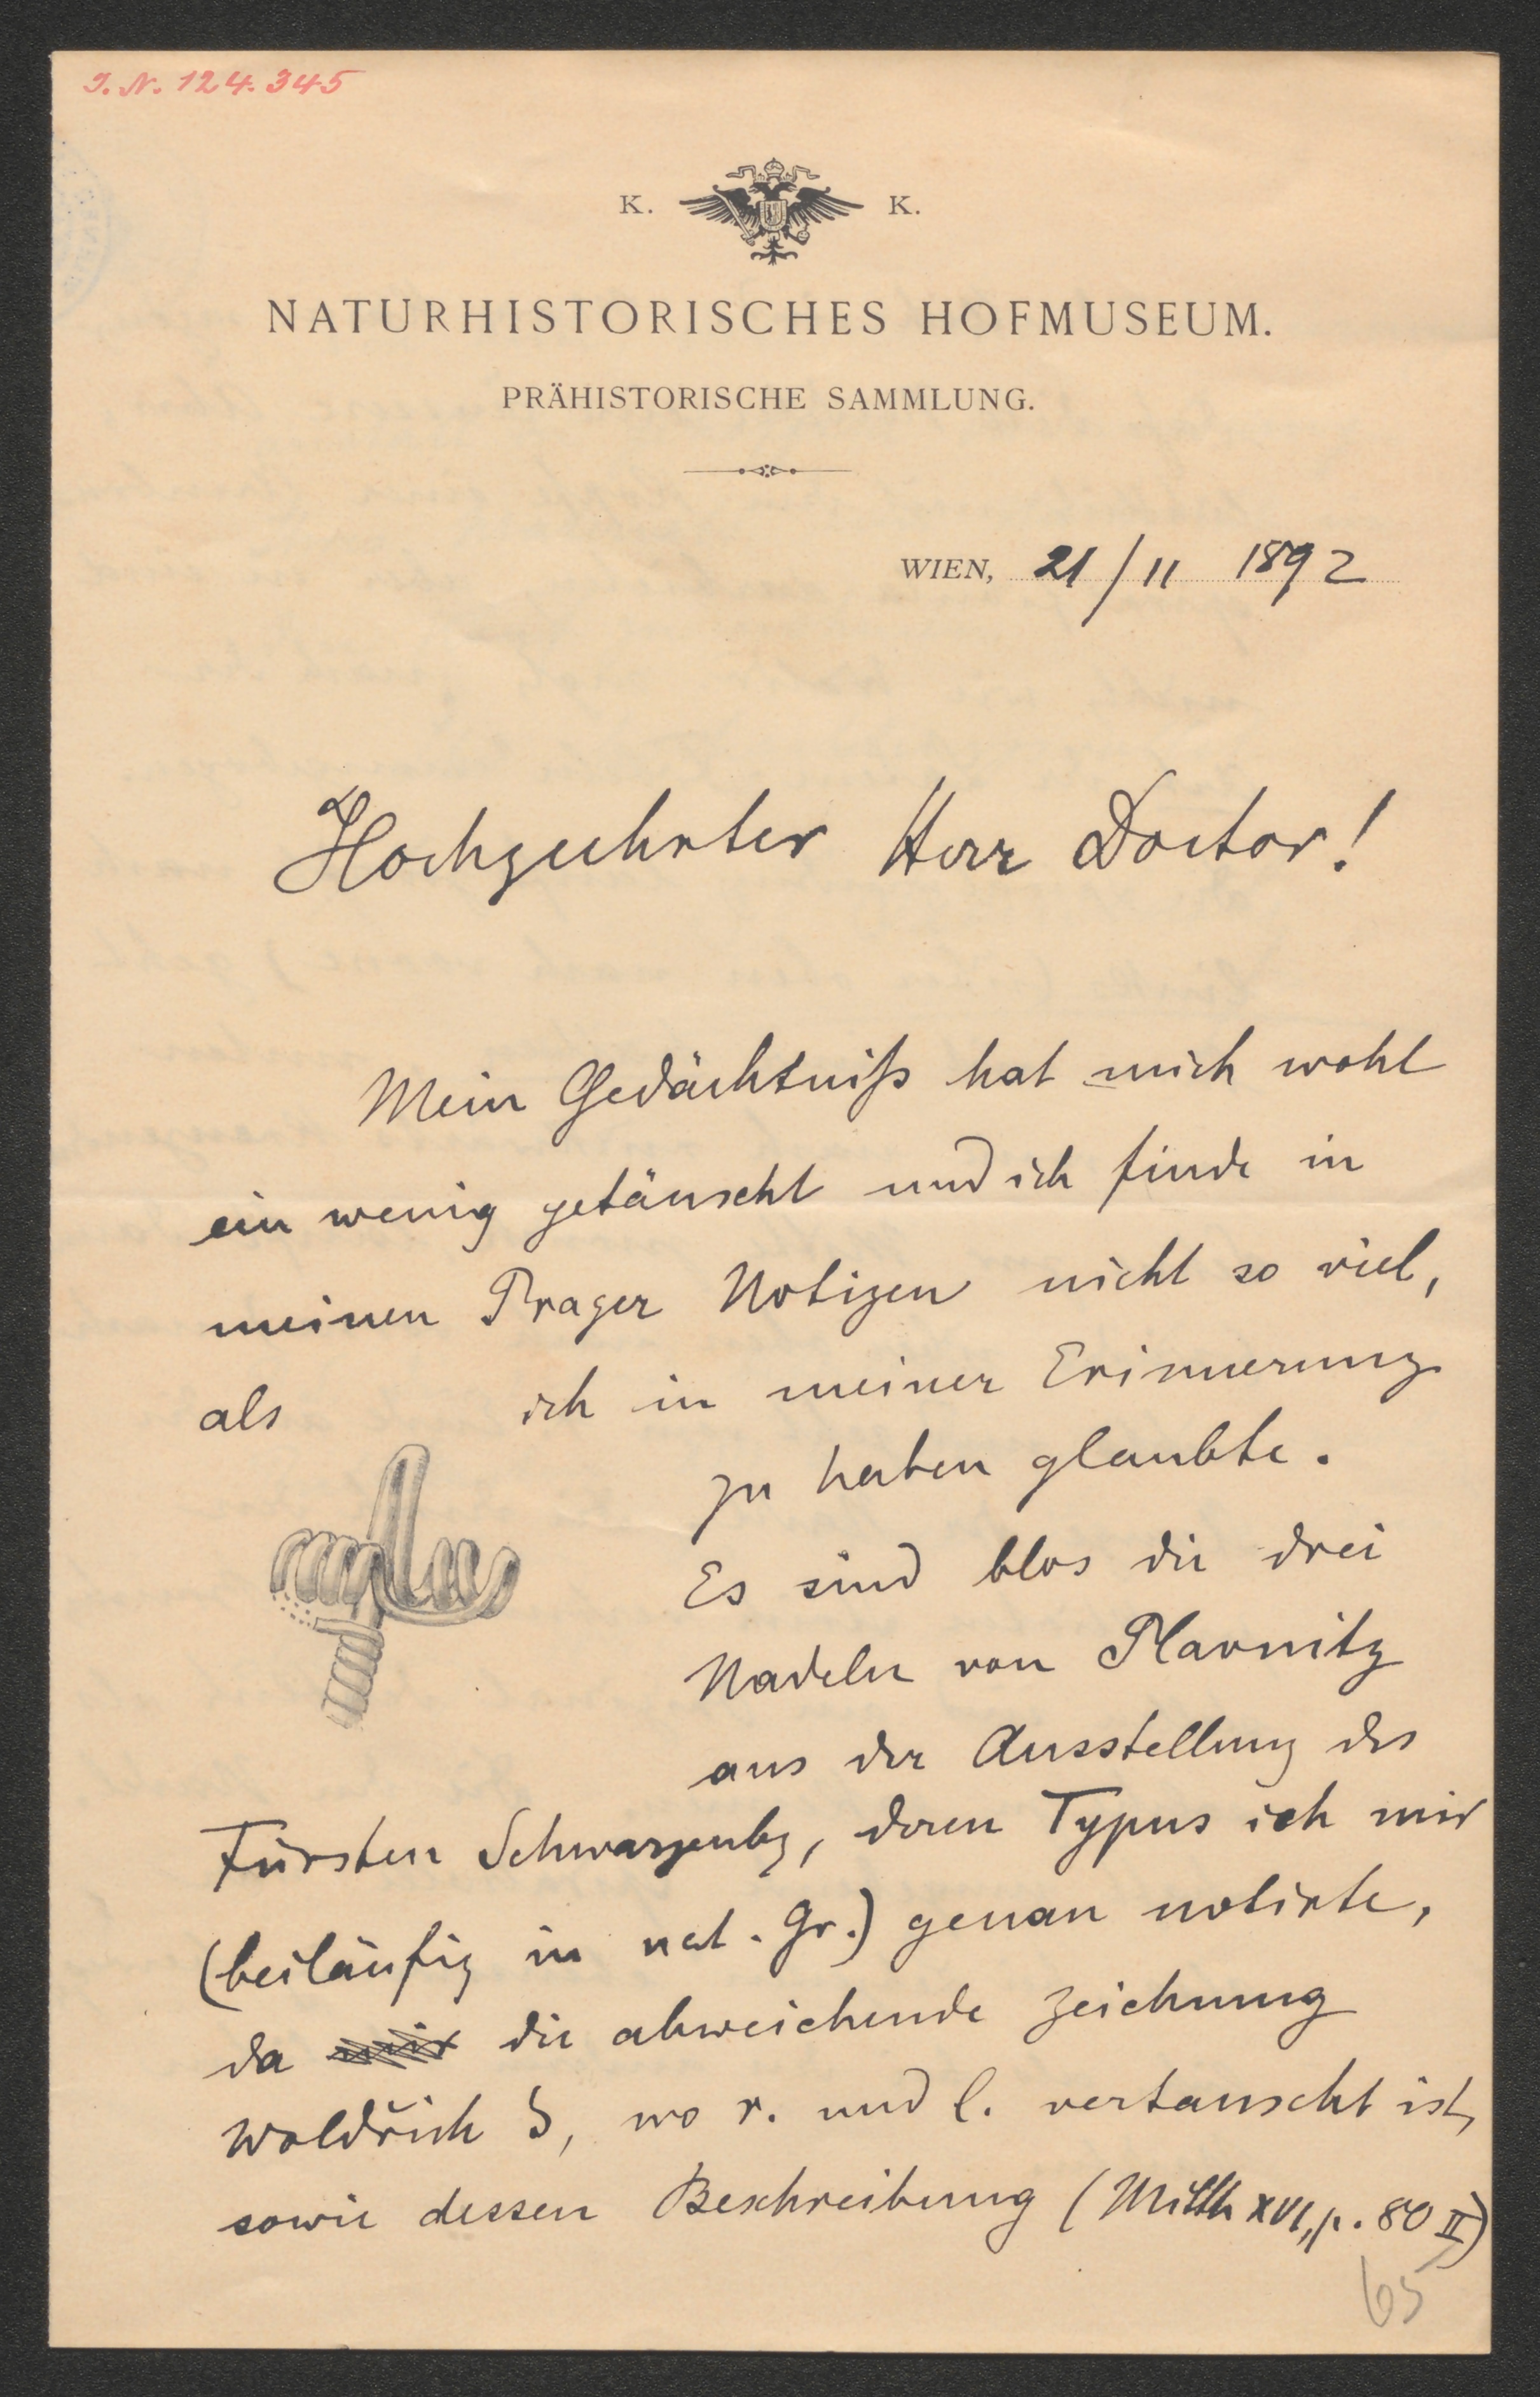 I. N. 124.345
K. K.
NATURHISTORISCHES HOFMUSEUM.
PRÄHISTORISCHE SAMMLUNG.
WIEN, 21/11 1892
Hochgeehrter Herr Doctor!
Mein Gedächtniß hat mich wohl
ein wenig getäuscht und ich finde in
meinen Prager Notizen nicht so viel,
als ich in meiner Erinnerung
zu haben glaubte.
Es sind blos die drei
Nadeln von Plavnitz
aus der Ausstellung des
Fürsten Schwarzenbg, deren Typus ich mir
(beiläufig in nat. Gr.) genau notirte,
da mir die abweichende Zeichnung
Woldřich's, wo r. und l. vertauscht ist,
sowie dessen Beschreibung (Mitth XVI, p. 80 II)
65